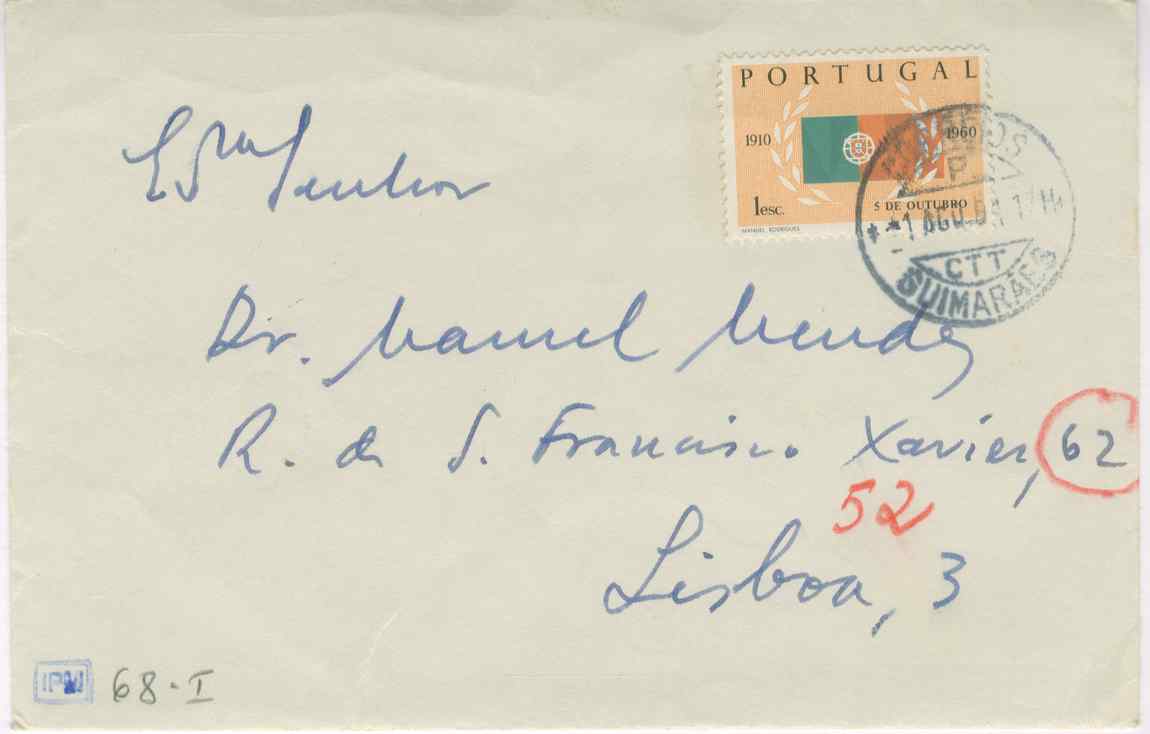 PORTUGAL
1910 1960
1esc. 5 DE OUTUBRO
MANUEL RODRIGUES
CTT
GUIMARÃES
Exmo Senhor
Dr. Manuel Mendes
R. de S. Francisco Xavier, 62
52
Lisboa, 3
IPM 68-I